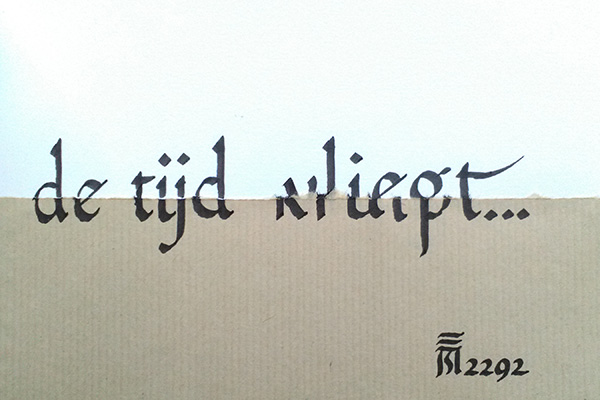 de tijd vliegt...
2292